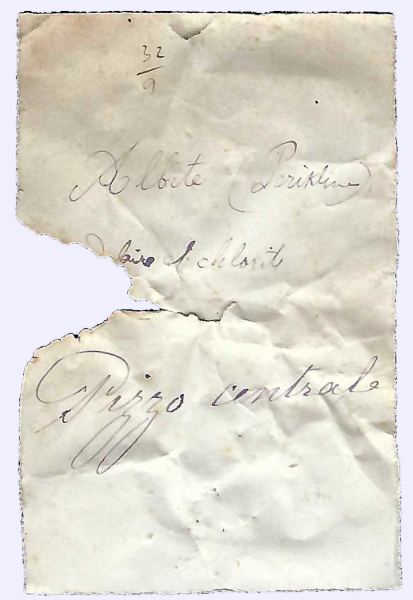 32
9
Albite (Periklin)
& chlorit
Pizzo centrale